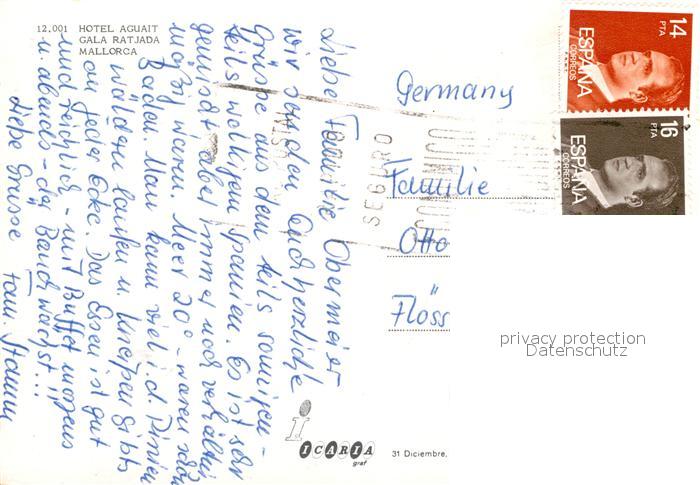 12.001 HOTEL AGUAIT
GALA RATJADA
MALLORCA
Liebe Familie Obermeier
wir senden Euch herzliche
Grüsse aus dem teils sonnigen -
teils wolkigem Spanien. Es ist sehr
günstig aber immer noch verhältnis
mäßig warm. Meer 20° - waren schon
baden. Man kann viel i.d. Pinien
wäldern laufen u. Kneipen gibts
an jeder Ecke. Das Essen ist gut
und reichlich - mit Buffet morgens
u. abends - der Bauch wächst!!
Liebe Grüsse Fam. Stamm
Germany
Familie
Otto
Flöss
SEGURO
14
PTA
ESPAÑA
CORREOS
16
PTA
ESPAÑA
CORREOS
privacy protection
Datenschutz
ICARIA
graf
31 Diciembre,